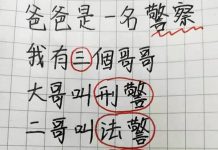 爸爸是一名警察
我有三個哥哥
大哥叫刑警
二哥叫法警